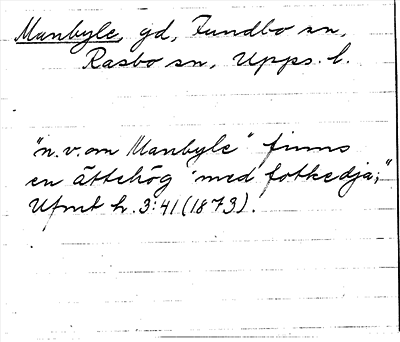 Manbyle, gd, Fundbo sn,
Rasbo sn, Upps. l.
"n.v. om Manbyle" finns
en ättehög "med fotkedja;"
Ufmt h. 3:41 (1873).